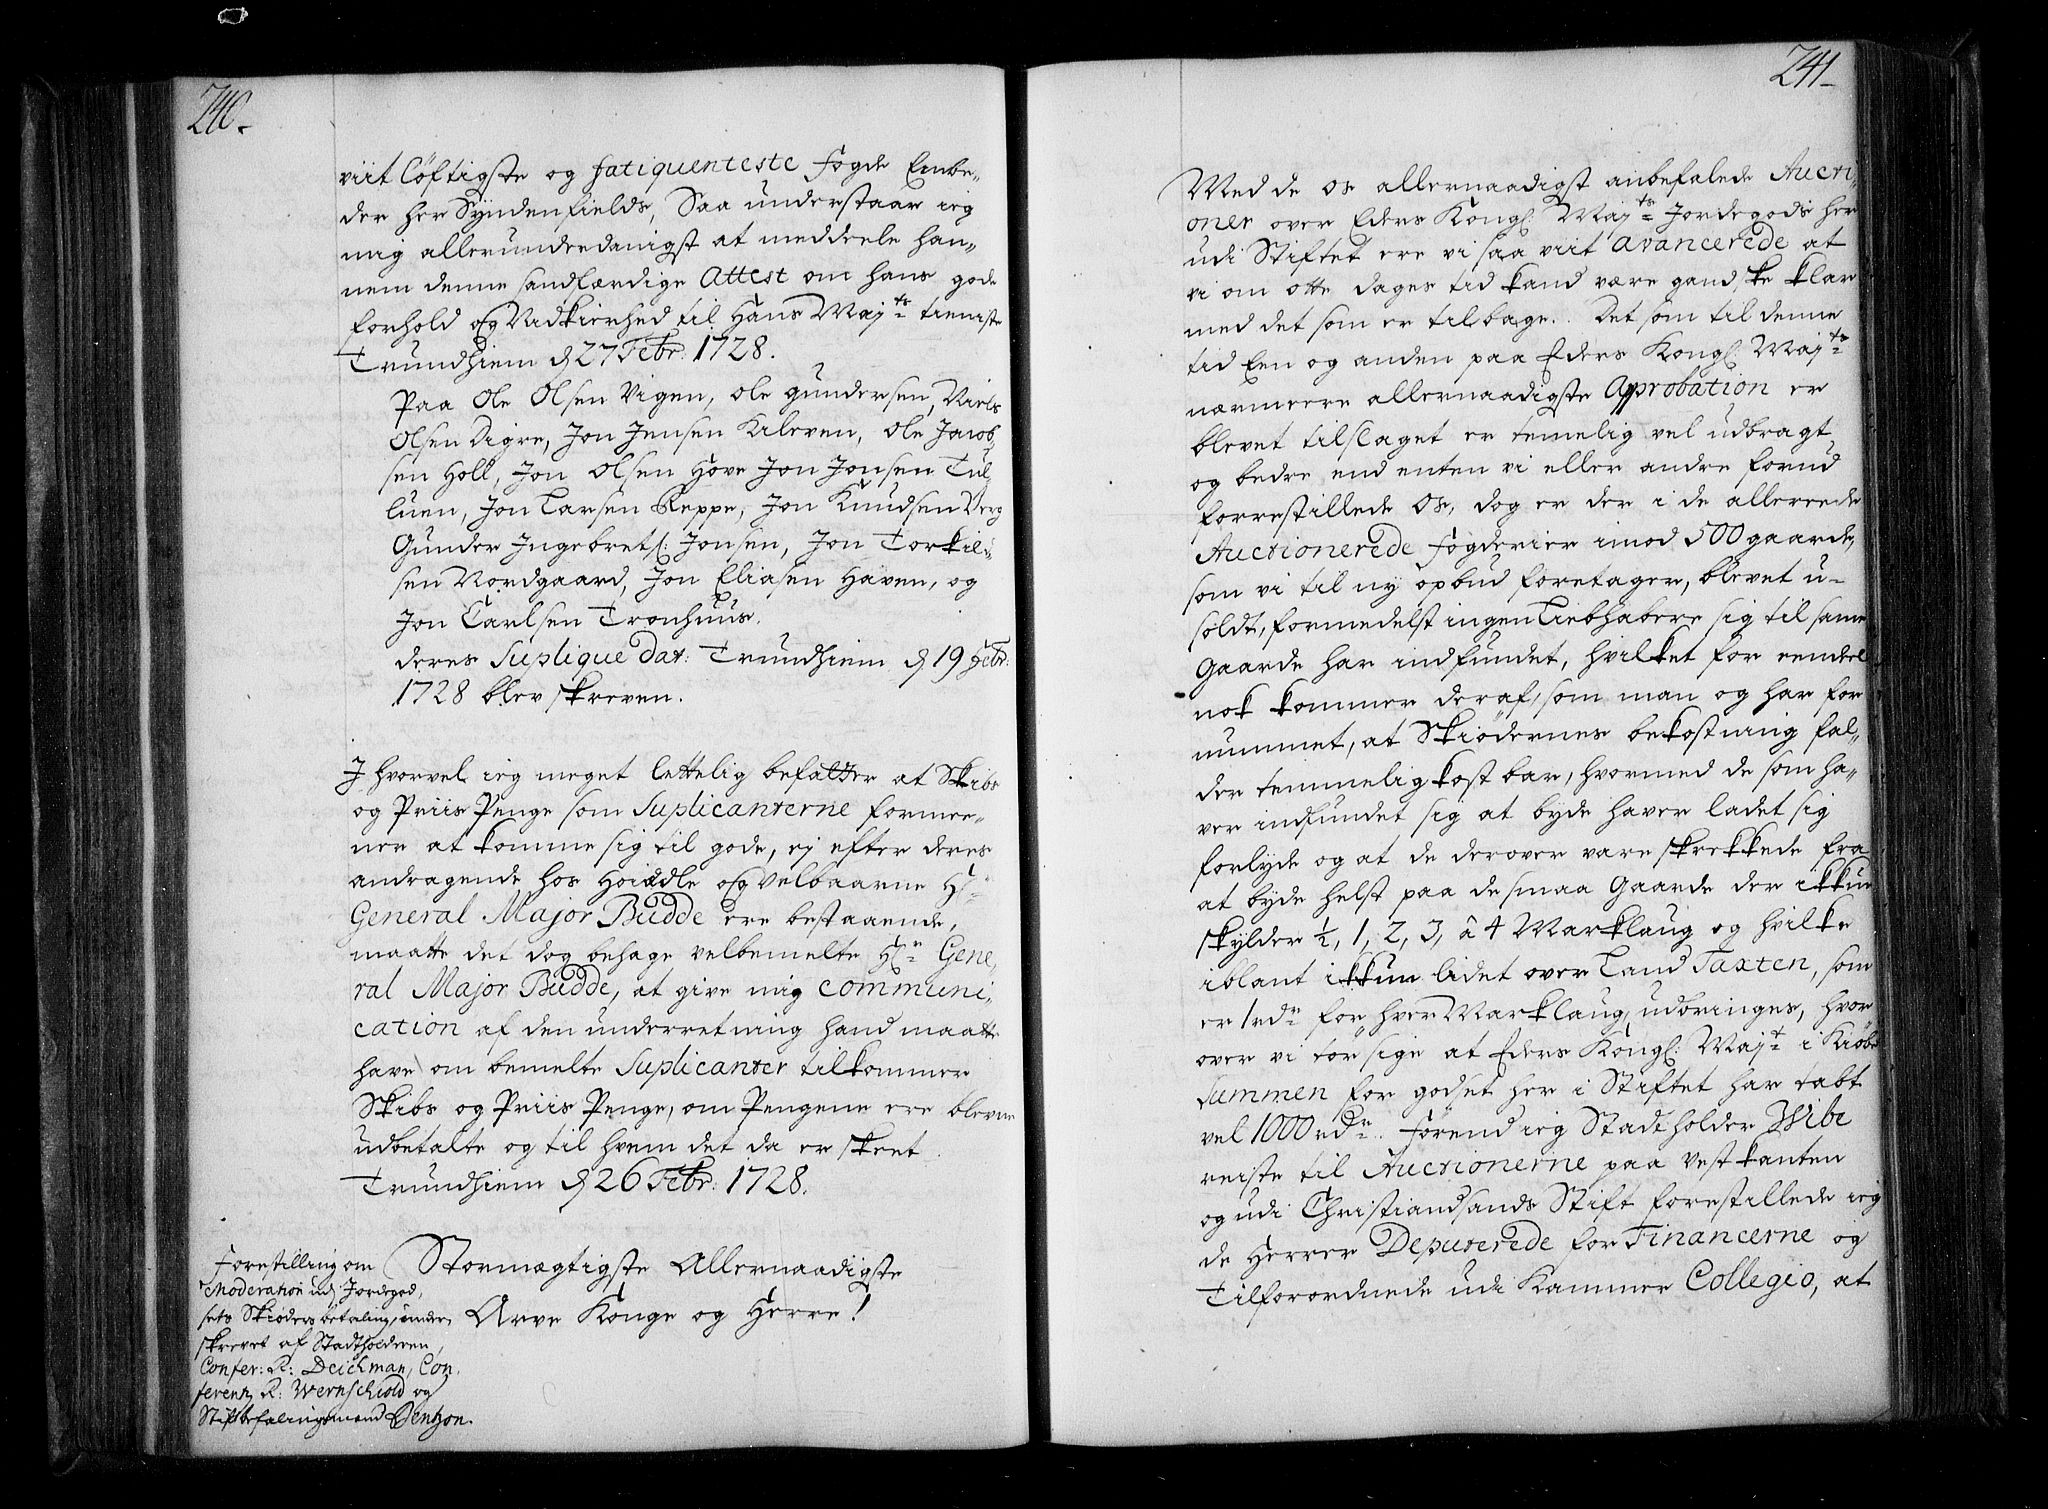 240.
viit løftigste og fatiquenteste fogde Embe„
der her Syndenfields, Saa understaar ieg
mig allerunderdanigst at meddeele han„
nem denne sandfærdige Attest om hans gode
forhold og Nidkierhed til Hans Maj:ts tieniste
Trundhiem d 27 Febr: 1728.
Paa Ole Olsen Vigen, Ole Gundersen, Niels
Olsen Digre, Jon Jensen Kleven, Ole Jacob„
sen Holl, Jon Olsen Hove Jon Jonsen Tul„
luen, Jon Larsen Reppe, Jon Knudsen Berg
Gunder Ingebretz: Jonsen, Jon Torkil„
sen Nordgaard, Jon Eliasen Haven, og
Jon Carlsen Tronhuus.
deres Suplique dat: Trundhiem d 19 Febr:
1728 blev skreven.
J hvorvel ieg meget lettelig befatter at Skibs
og Priis Penge som Suplicanterne formee„
ner at komme sig til gode, ej efter deres
andragende hos Høiædle og Velbaarne Hr
General Major Budde ere bestaaende,
maatte det dog behage velbemelte Hr Gene„
ral Major Budde, at give mig communi„
cation af den underretning hand maatte
have om bemelte Suplicanter tilkommer
Skibs og Priis Penge, om Pengene ere blevne
udbetalte og til hvem det da er skeet
Trundhiem d 26 Febr: 1728.
Forestilling om
Moderation udj Jordegod„
sets Skiøders betaling, under„
skrevet af Stadtholderen,
Confer: R: Deichman, Con„
ferentz R: Wernschiold og
Stiftbefalingsmand Bentzon.
Stormægtigste Allernaadigste
Arve Konge og Herre!
241
Med de os allernaadigst anbefalede Aucti„
oner over Eders Kongl: Maj:ts Jordegods her
udi Stiftet ere vi saa viit avancerede at
vi om otte dages tid kand være gandske klar
med det som er tilbage. Det som til denne
tid Een og anden paa Eders Kongl: Maj:ts
nærmeere allernaadigste Aprobation er
blevet tilslaget er temelig vel udbragt
og bedre end enten vi eller andre forud
forrestillede Os, dog er der i de allereede
Auctionerede fogderier imod 500 gaarde,
som vi til ny opbud foretager, blevet u-
soldt, formedelst ingen Liebhabere sig til samme
Gaarde har indfundet, hvilket for eendeel
nok kommer deraf, som man og har for
nummet, at Skiødernes bekostning fal„
der temmelig kost bar, hvormed de som ha„
ver indfundet sig at byde haver ladet sig
forlyde og at de derover vare skrekkede fra
at byde helst paa de smaa Gaarde der ikkun
skylder ½, 1, 2, 3, â 4 Marklaug og hvilke
iblant ikkun lidet over Land Taxten, som
er 1 rdr for hver Marklaug, udbringes, hvor
over vi tør sige at Eders Kongl: Maj:t i Kiøbe
Summen for godset her i Stiftet har tabt
vel 1000 rdr. Førend ieg Stadtholder Wibe
reiste til Auctionerne paa Vestkanten
og udi Christiandsands Stift forestillede ieg
de Herrer Deputerede for Financerne og
Tilforordnede udi Kammer Collegio, at